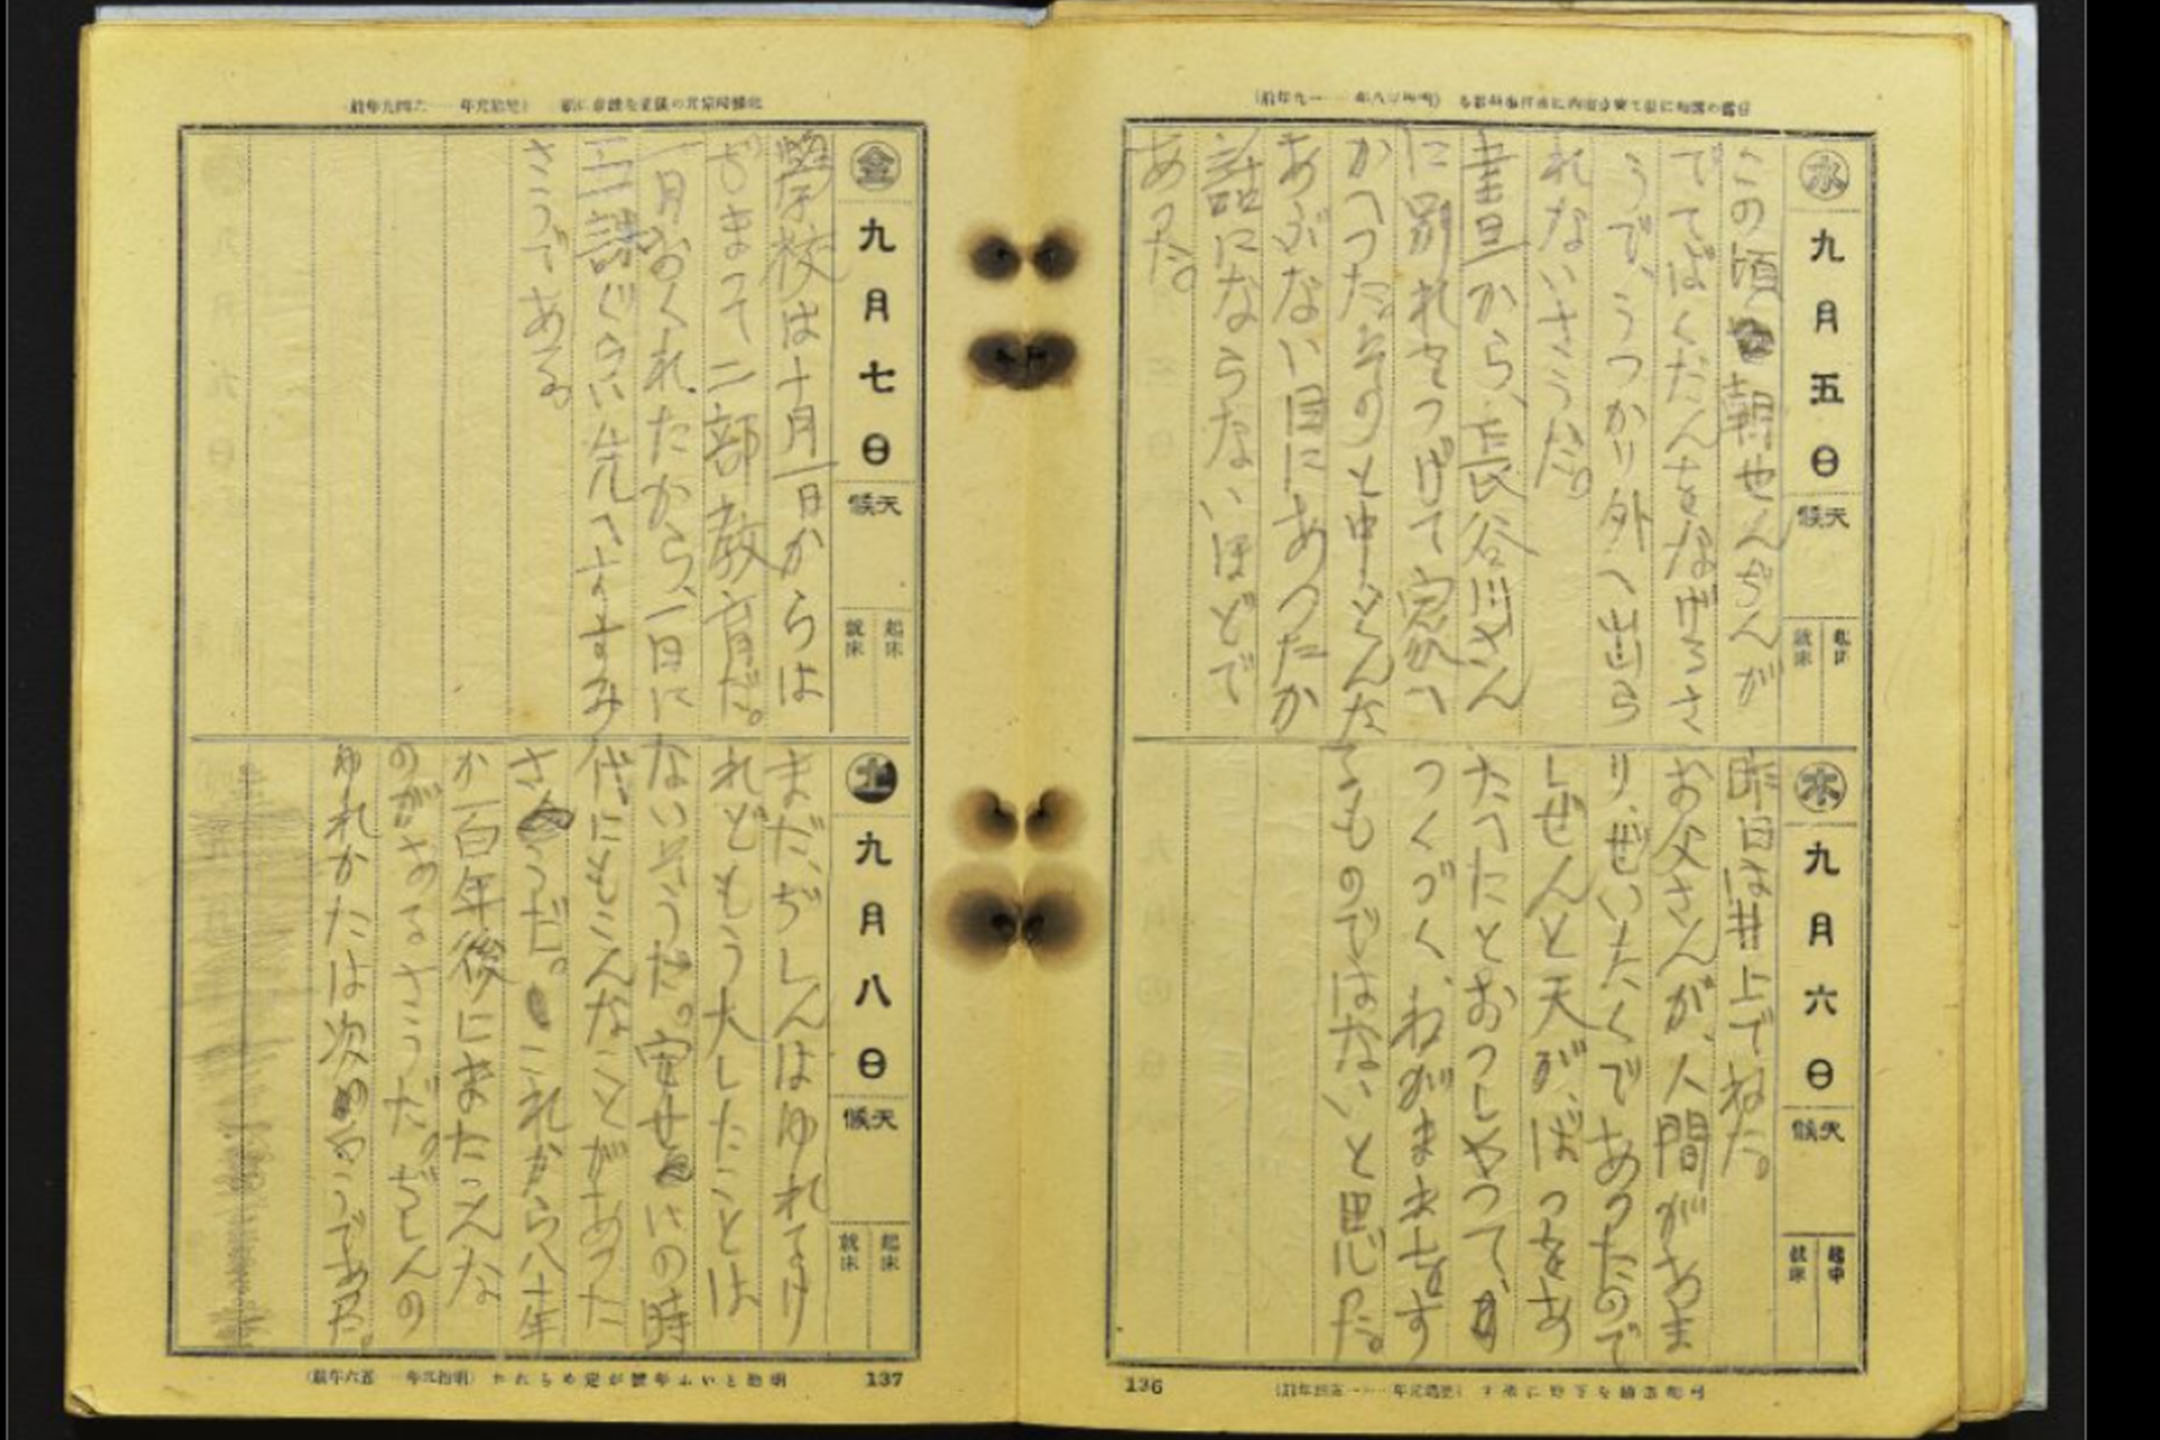 水
九月五日
天候
就床
この頃朝せんぢんが
でてばくだんをなげるさ
うで、うつかり外へ出ら
れないさうだ。
晝旦から、長谷川さん
に別れをつげて家へ
かへつた。そのと中とんだ
あぶない目にあつたか
話にならないほどで
あつた。
木
九月六日
天候
就床
昨日は井上でねた。
お父さんが、人間があま
り、ぜいたくであつたので
しぜんと天が、ばつをあ
たへたとおつしやつて、
つくづく、わがまますす
てるものではないと思った。
136
金
九月七日
天候
起床
就床
學校は十月一日からは
ぢまつて二部教育だ。
一月おくれたから、一日に
三課ぐらい先へすすみ
さうである。
土
九月八日
天候
起床
就床
まだ、ぢしんはゆれてけ
れどももう大したことは
ないそうだ。安せいの時
代にもこんなことがあつた
さうだ。これから八十年
か百年後にまたこんな
のがあるさうだ。ぢしんの
ゆれかたは次のやうであつた。
明治といふ年號が定められた
137